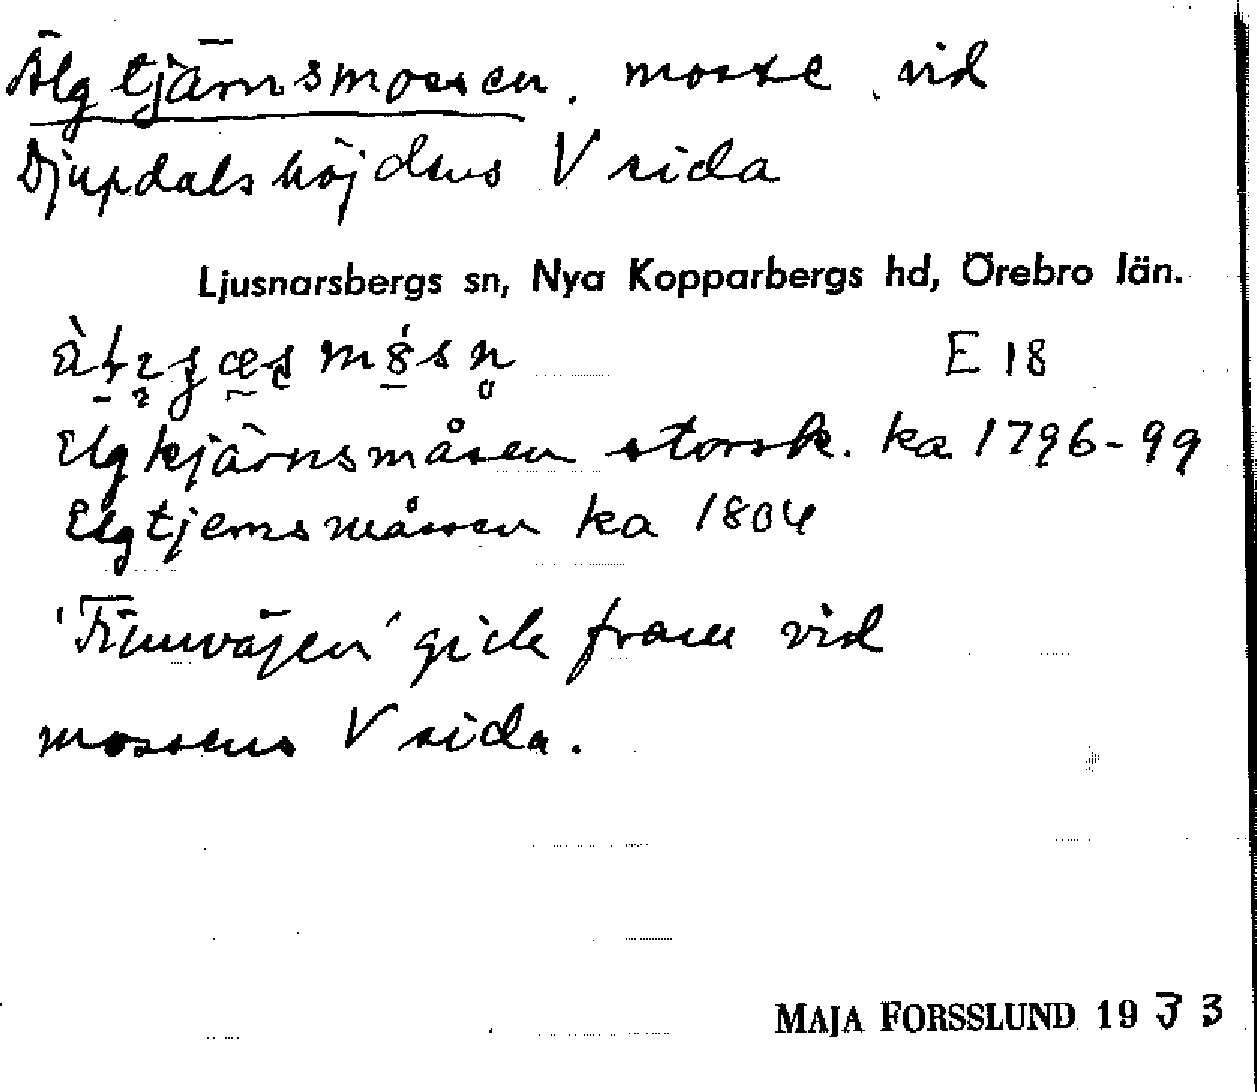 Älgtjärnsmossen. mosse vid
Djupdalshöjdens V sida
Ljusnarsbergs sn, Nya Kopparbergs hd, Örebro län.
E 18
Elgkjärnsmåsen storsk. ka 1796-99
Elgtjernsmåssen ka 1804
'Finnvägen' gick fram vid
mossens V sida.
MAJA FORSSLUND 1933